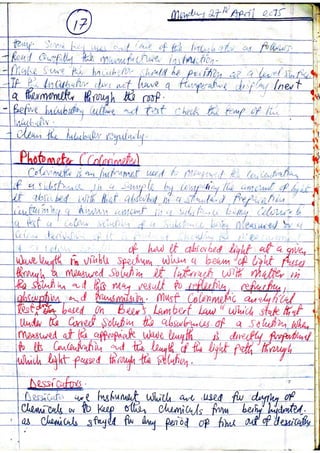 17
Monday 27th April 2015
temp. Some key uses and Care of the Incubator as follows
- Read Carefully the manufacturer Instruction.
- Make sure the Incubator should be position at a level surface
- If the Incubator does not have a temperature display Inert
a thermometer through the roof.
- Before Incubating culture and test check the temp of the
Incubator.
- Clean the Incubator regularly.
Photometer (Colorimeter)
Colorimeter is an Instrument used to measured the concentration
of a substance in a sample by comparing the amount of light
it absorbed with that absorbed in a standard Preparation
containing a known amount of substance being
a test a solution of a substance being measured or a
of how it absorbed light at a given
wave length in visible spectrum when a beam of light passes
through a measured solution it interact with matter in
the solution and this may result to reflection, refraction,
absorption and transmission. Most Colorimetric analytical
test are based on Beer's Lambert law which state that
under the Correct Solution the absorbances of a solution when
measured at the appropriate wave length is directly proportional
to its Concentration and the length of the light path through
which light passed through the solution.
Dessicators
Dessicator are Instrument which are used for drying of
chemicals or to keep other chemicals from being hydrated.
as chemicals stayed for any period of time out of dessicator